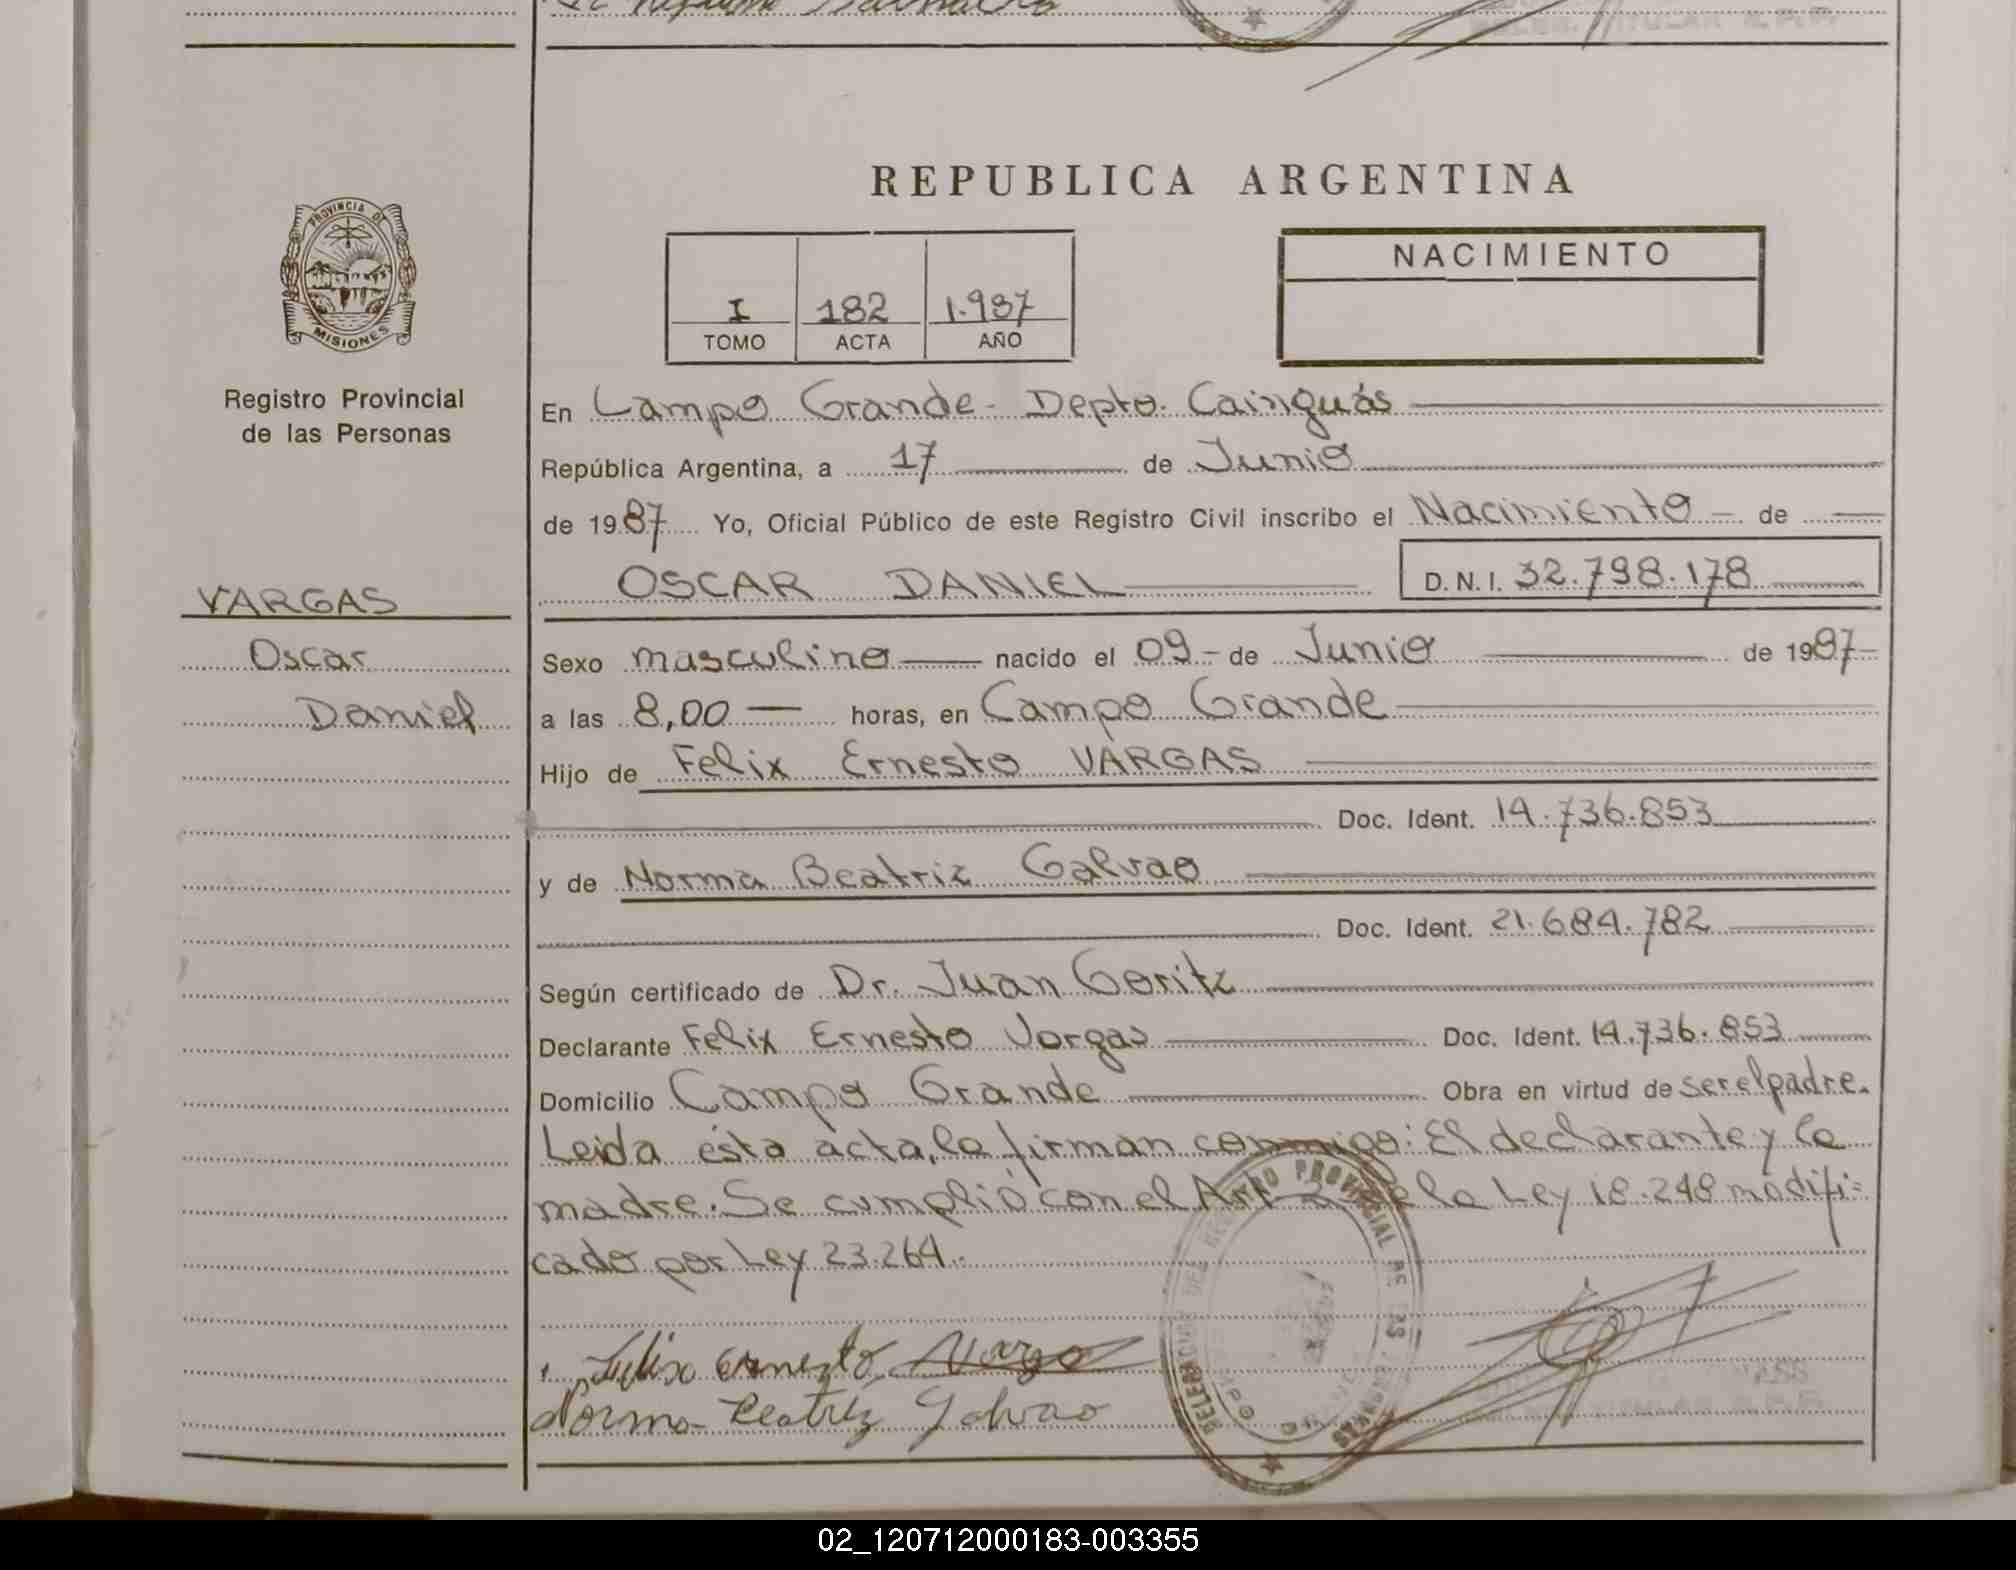 REPUBLICA ARGENTINA
PROVINCIA DE
MISIONES
Registro Provincial
de las Personas
I 182 1.987
TOMO ACTA AÑO
NACIMIENTO
En Campo Grande - Depto. Cainguás
República Argentina, a 17 de Junio
de 1987 Yo, Oficial Público de este Registro Civil inscribo el Nacimiento - de
OSCAR DANIEL D.N.I. 32.798.178
VARGAS
Oscar
Daniel
Sexo masculino nacido el 09 - de Junio de 1987-
a las 8,00 horas, en Campo Grande
Hijo de Felix Ernesto VARGAS
Doc. Ident. 14.736.853
y de Norma Beatriz Galvao
Doc. Ident. 21.684.782
Según certificado de Dr. Juan Goritz
Declarante Felix Ernesto Vargas Doc. Ident. 14.736.853
Domicilio Campo Grande Obra en virtud de ser el padre.
Leida ésta acta, la firman conmigo: El declarante y la
madre. Se cumplió con el Art. de la Ley 18.248 modifi=
cado por Ley 23.264.-
Felix Ernesto Vargas
Norma Beatriz Galvao
02_120712000183-003355